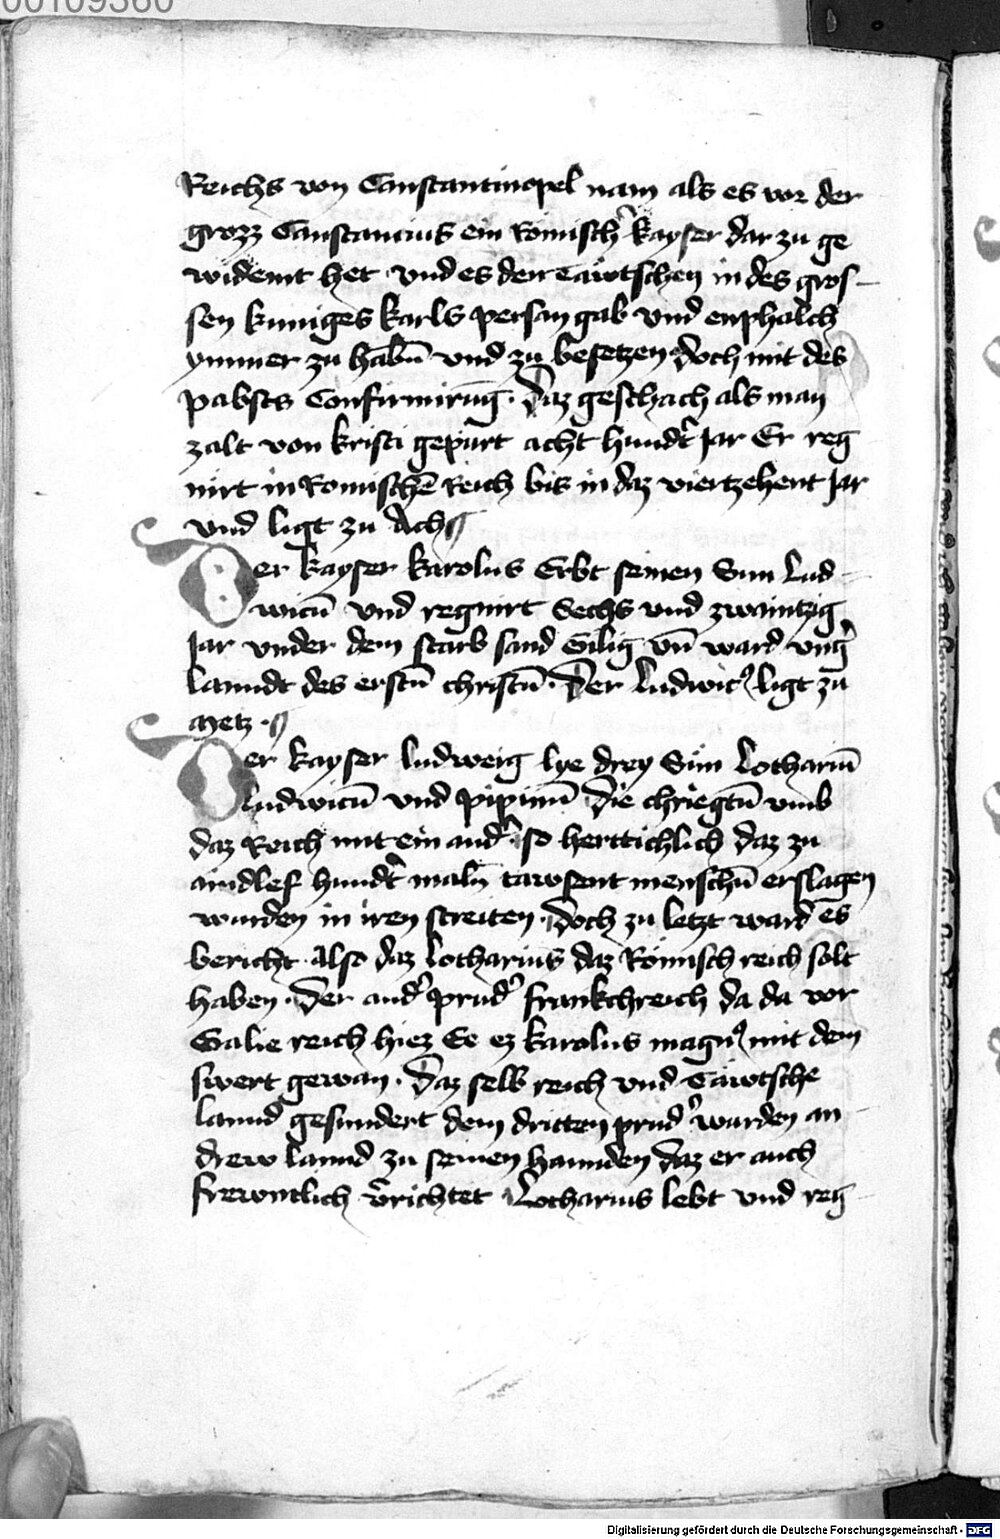 00109360
Reichs von Constantinopel nam als es vor der
grozz Constantius ein Römisch̾ kayser dar zu ge
widemt het vnd es den Täwtschen in des gros-
sen kuniges karls persan gab vnd enphalch
ymmer zu habn̄ vnd zu besetzen doch mit des
pabsts Confirmirūg. Daz geschach als man
zalt von kristi gepurt acht hundt̾ Jar Er reg
nirt in Romischē Reich bis in daz viertzehent Jar
vnd ligt zu Ach
Der kayser karolus Erbt seinen Sun Lud-
wicū vnd regnirt Sechs vnd zwaintzig
Jar vnder dem starb sand Gilig vn̄ ward vng̾
lanndt des erstn̄ christn̄. Der Ludwicꝰ ligt zu
Metz.
Der kayser ludweig lye drey Sün Lothariū
Ludwicū vnd pipinū die chriegtn̄ vmb
daz Reich mit ein and̾ so herttichlich daz zu
aindlef hundt̾ maln̄ tawsent menschn̄ erslagen
wurden in iren streiten. Doch zu letzt ward es
bericht also daz Lotharius daz Römisch reich solt
haben. Der and̾ prud̾ frankchreich da da vor
Galie reich hiez Ee ez karolus magnꝰ mit dem
swert gewan. Daz selb reich vnd Täwtsche
lannd gesundert dem dritten prud̾ wurden an-
drew lannd zu seinen hannden daz er auch
frewntlich v̾richtet Lotharius lebt vnd reg-
Digitalisierung gefördert durch die Deutsche Forschungsgemeinschaft - DFG